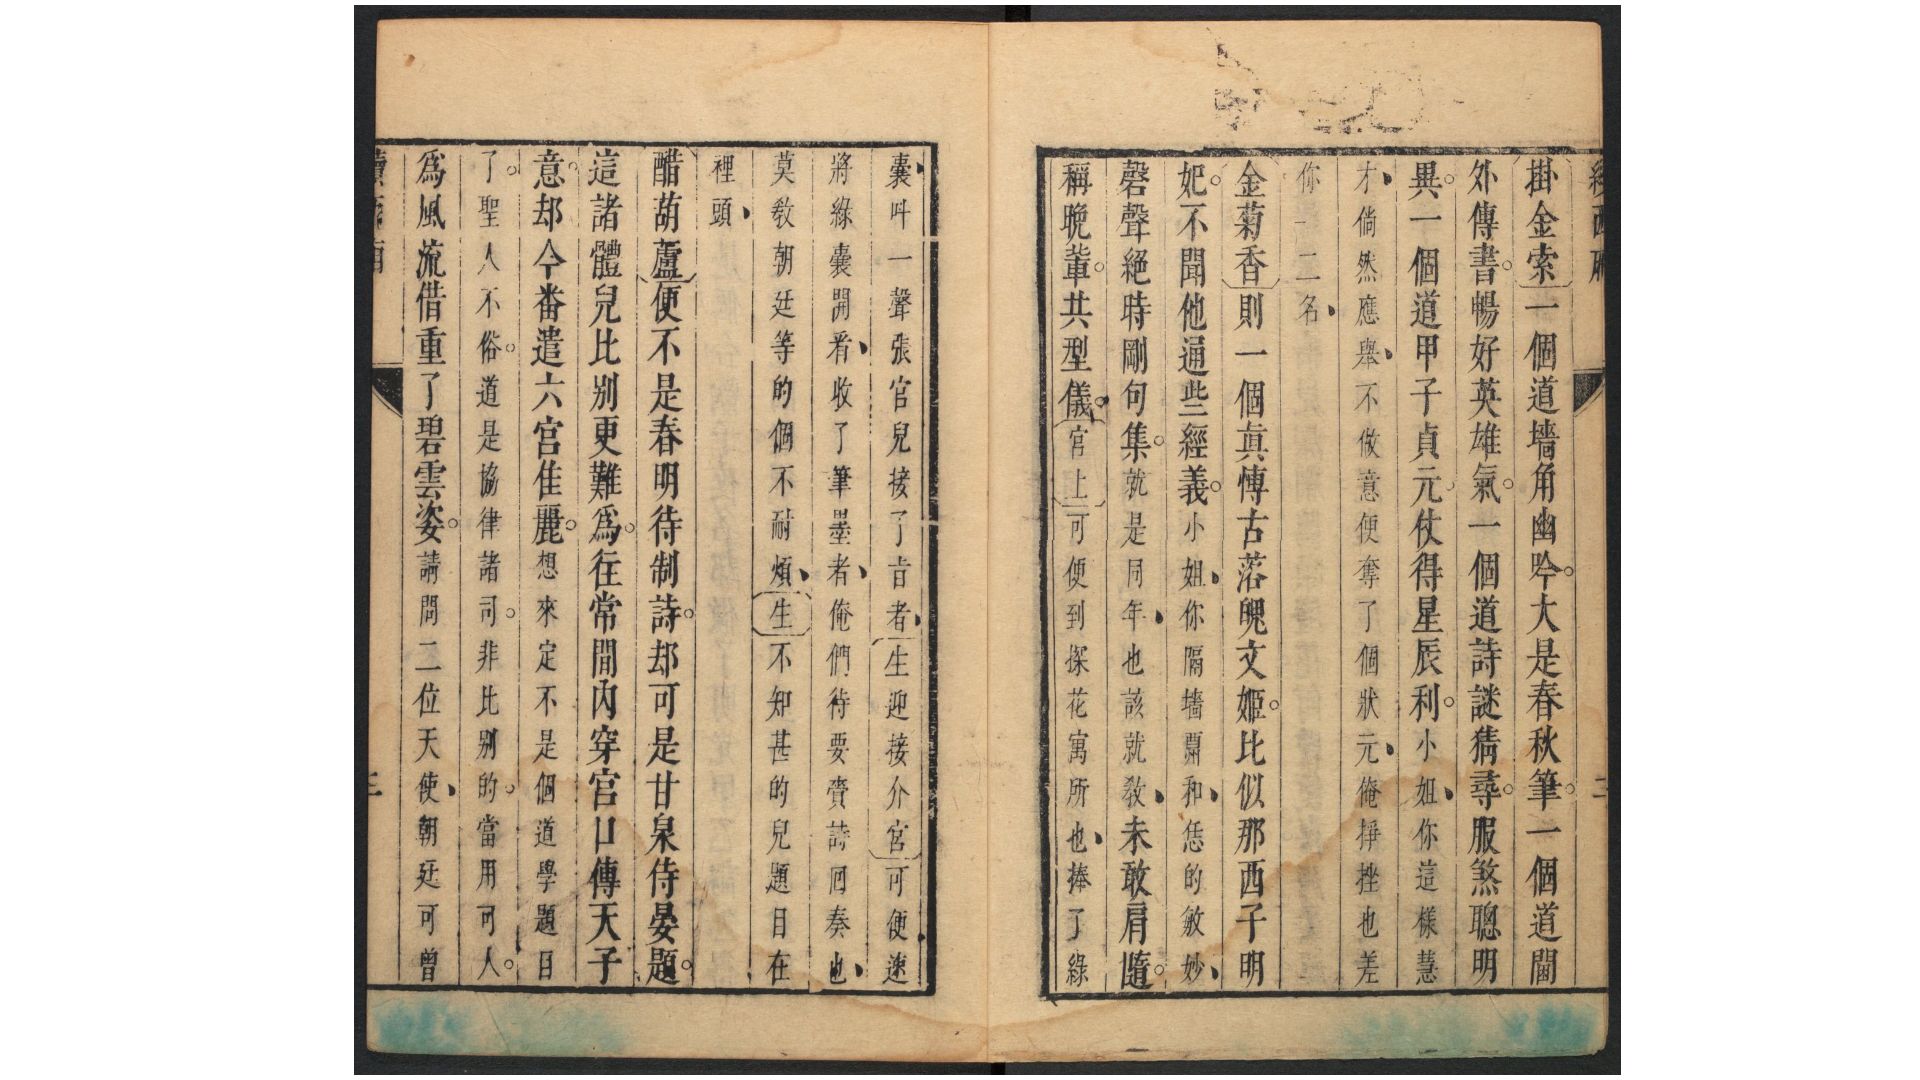 續西廂
二
掛金索一個道墻角幽吟。大是春秋筆。一個道閫
外傳書。暢好英雄氣。一個道詩謎猜尋。服煞聰明
異。一個道甲子貞元仗得星辰利。小姐、你這樣慧
才、倘然應舉、不做意便奪了個狀元、俺掙挫也差
你一二名、
金菊香則一個眞愽古落魄文姬。比似那西子明
妃。不聞他通些經義。小姐、你隔墻賡和、恁的敏妙、
磬聲絕時剛句集。就是同年、也該就敎、未敢肩隨。
稱晚軰。共型儀。官上可便到探花寓所也、捧了綠
囊、呌一聲張官兒接了㫖者、生迎接介宮可便速
將綠囊開看、收了筆墨者、俺們待要賫詩囘奏也、
莫敎朝廷等的個不耐煩、生不知甚的兒題目在
裡頭、
醋葫蘆便不是春明待制詩。却可是甘泉侍晏題。
這諸體兒比别更難爲。往常間內穿宮口傳天子
意。却今番遣六宮佳麗。想來定不是個道學題目
了。聖人不俗。道是協律諸司。非比别的。當用可人。
爲風流借重了碧雲姿。請問二位天使、朝廷可曾
續西廂
三